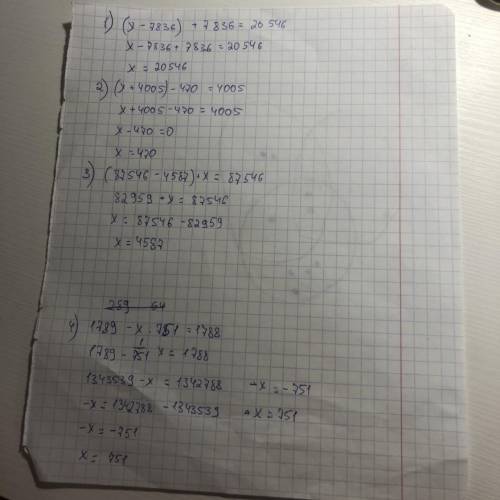 1) (x - 7836) + 7836 = 20546
x - 7836 + 7836 = 20546
x = 20546
2) (x + 4005) - 470 = 4005
x + 4005 - 470 = 4005
x - 470 = 0
x = 470
3) (87546 - 4587) + x = 87546
82959 + x = 87546
x = 87546 - 82959
x = 4587
259 64
4) 1789 - x : 751 = 1788
1789 - 1/751 x = 1788
1343539 - x = 1342788 -x = -751
-x = 1342788 - 1343539 x = 751
-x = -751
x = 751